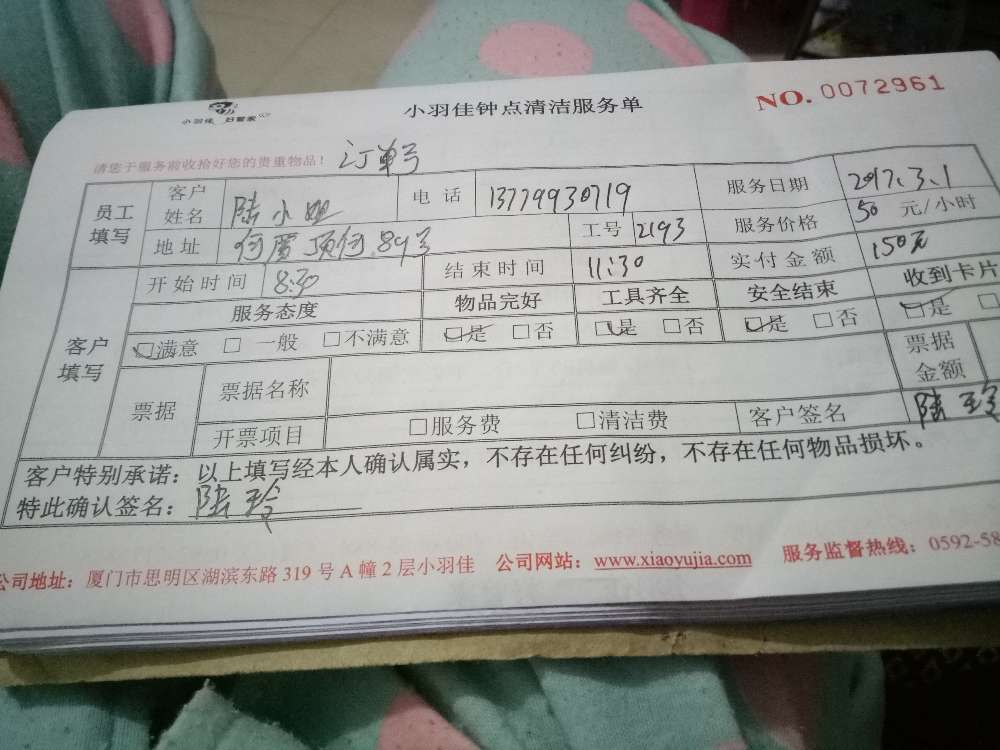 小羽佳 好管家
小羽佳钟点清洁服务单
NO. 0072961
请您于服务前收拾好您的贵重物品！ 订单号
员工填写 客户姓名 陆小姐 电话 13779930719 服务日期 2017.3.1
地址 何厝顶何.89号 工号 2193 服务价格 50 元/小时
客户填写 开始时间 8:30 结束时间 11:30 实付金额 150元
服务态度 物品完好 工具齐全 安全结束 收到卡片
☑满意 □一般 □不满意 ☑是 □否 ☑是 □否 ☑是 □否 ☑是 □
票据 票据名称 票据金额
开票项目 □服务费 □清洁费 客户签名 陆玲
客户特别承诺：以上填写经本人确认属实，不存在任何纠纷，不存在任何物品损坏。
特此确认签名：陆玲
公司地址：厦门市思明区湖滨东路 319 号 A 幢 2 层小羽佳 公司网站：www.xiaoyujia.com 服务监督热线：0592-58